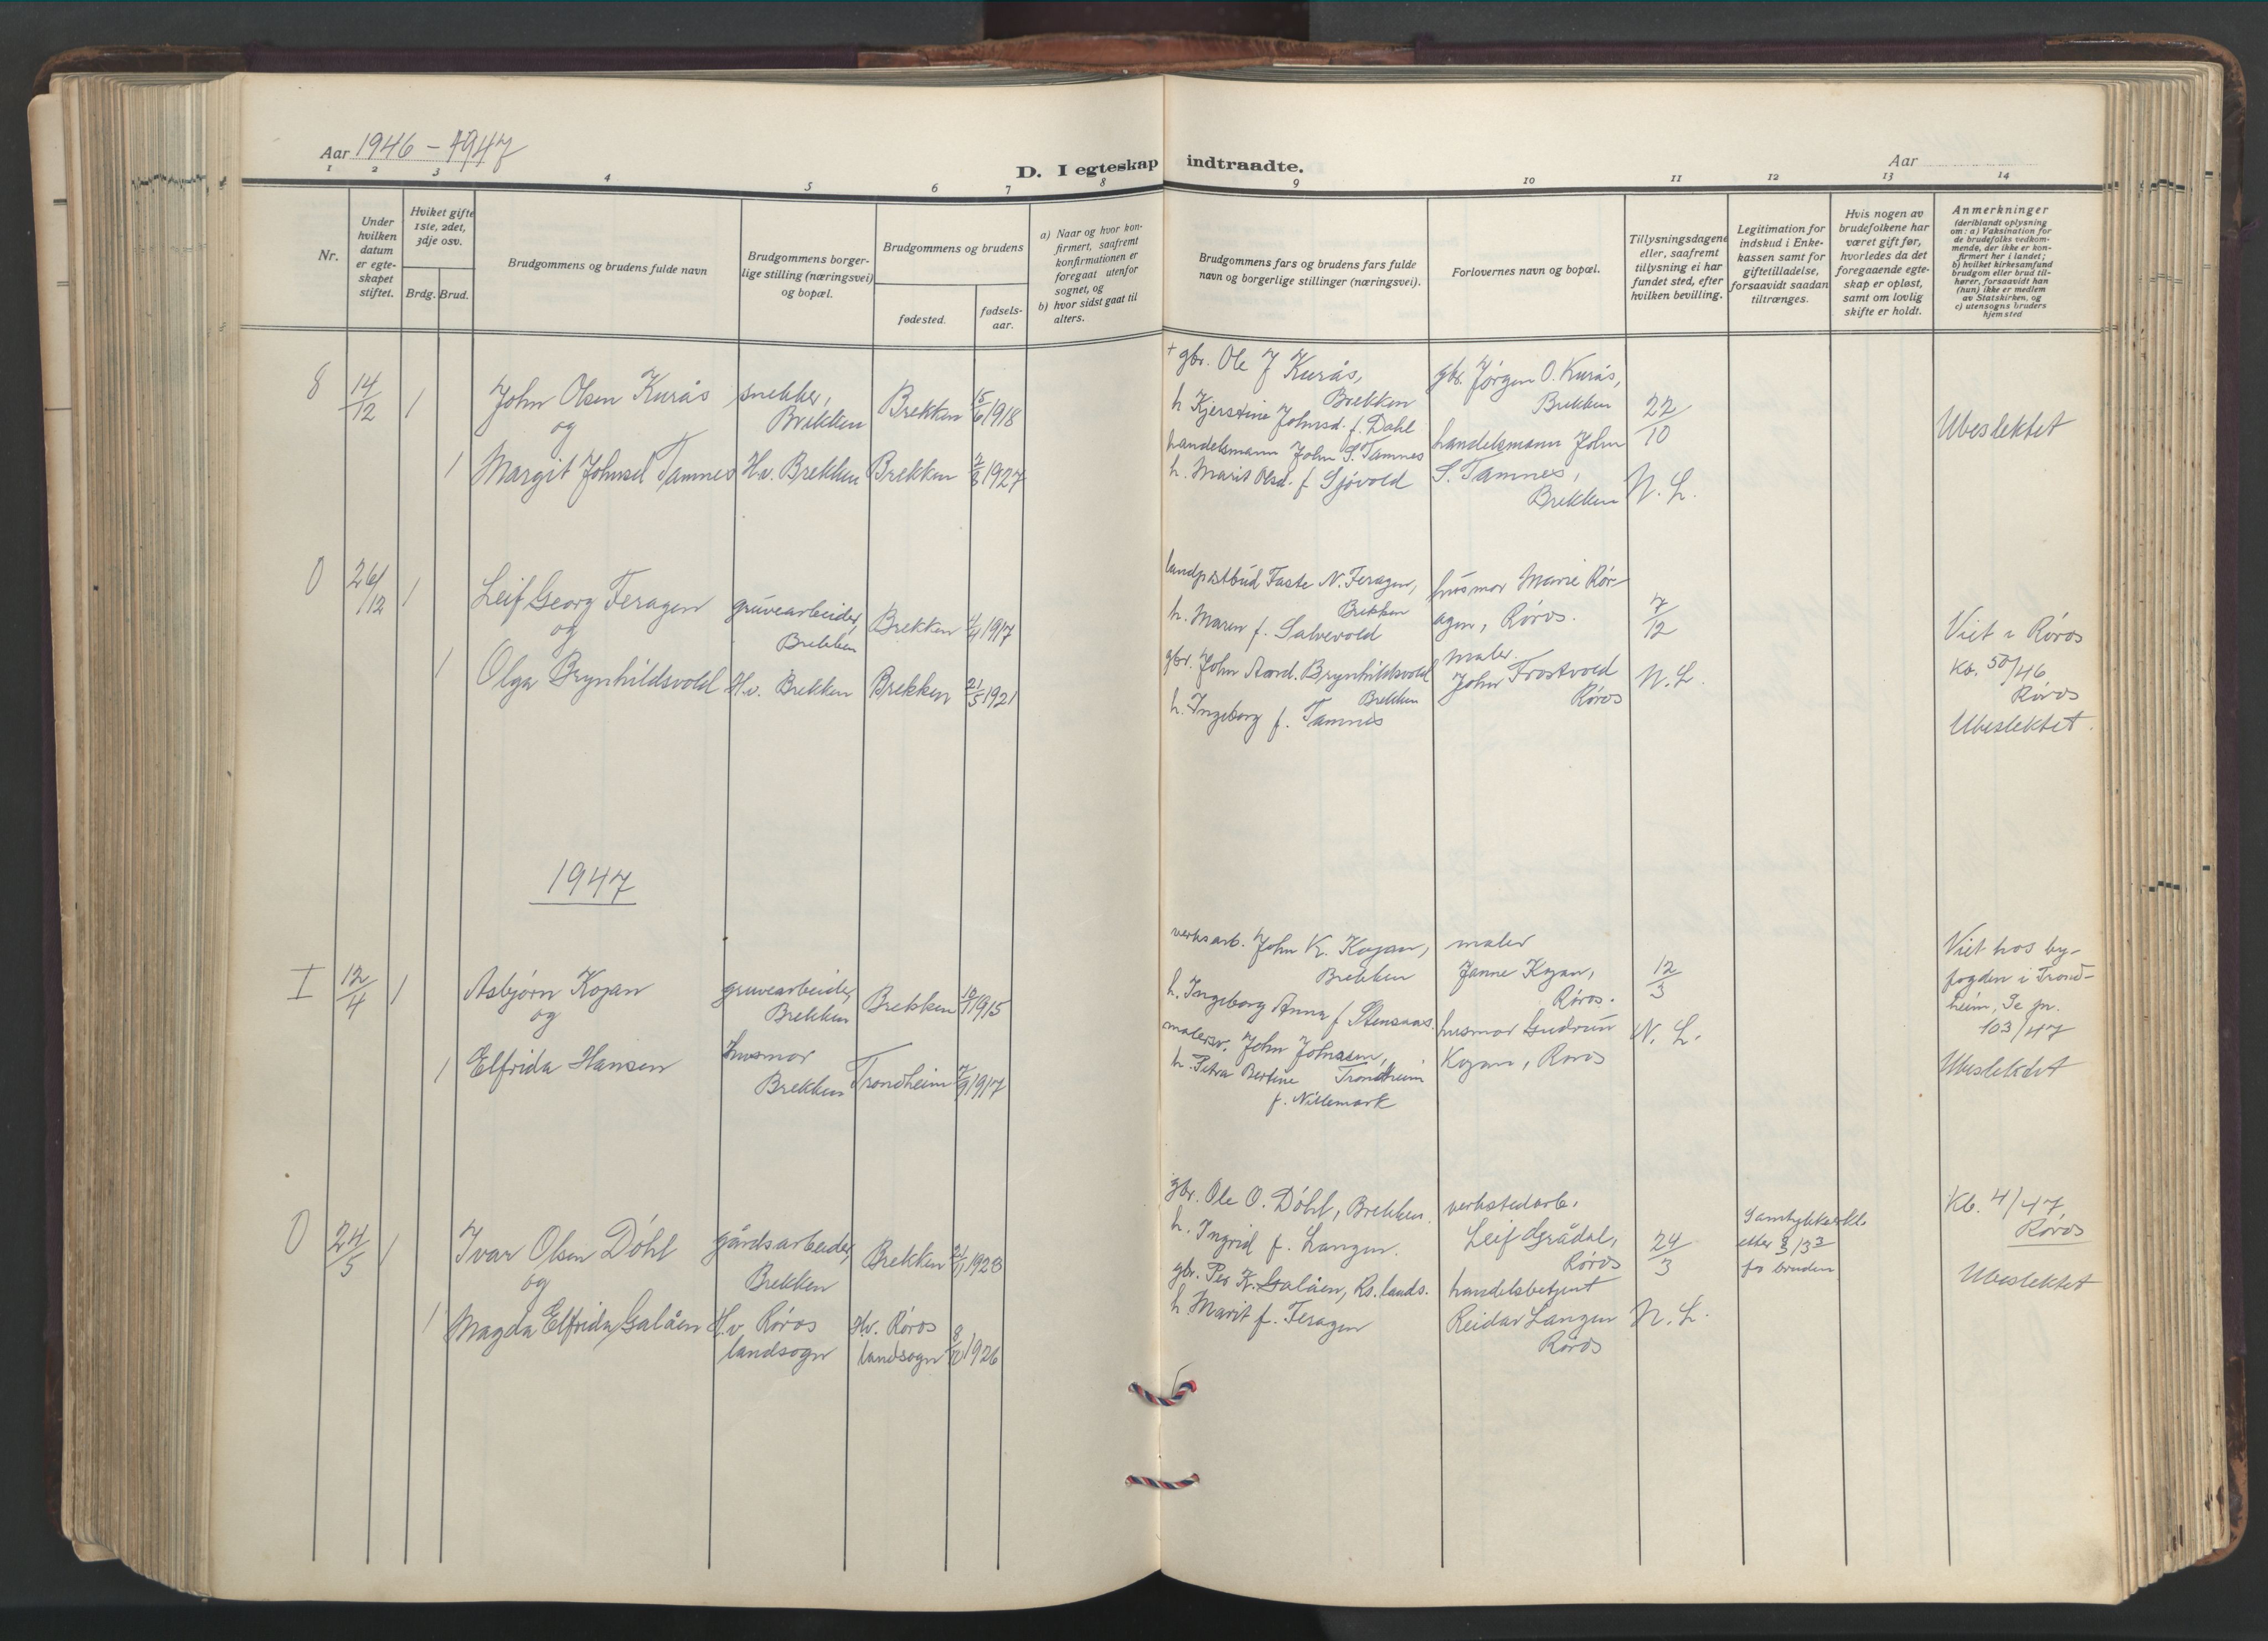 Aar 1946 – 1947
D. I egteskap indtraadte.
Aar
1 2 3 4 5 6 7 8 9 10 11 12 13 14
Nr.
Under
hvilken
datum
er egte-
skapet
stiftet.
Hvilket gifte
1ste, 2det,
3dje osv.
Brdg. Brud.
Brudgommens og brudens fulde navn
Brudgommens borger-
lige stilling (næringsvei)
og bopæl.
Brudgommens og brudens
fødested.
fødsels-
aar.
a) Naar og hvor kon-
firmert, saafremt
konfirmationen er
foregaat utenfor
sognet, og
b) hvor sidst gaat til
alters.
Brudgommens fars og brudens fars fulde
navn og borgerlige stillinger (næringsvei).
Forlovernes navn og bopæl.
Tillysningsdagene
eller, saafremt
tillysning ei har
fundet sted, efter
hvilken bevilling.
Legitimation for
indskud i Enke-
kassen samt for
giftetilladelse,
forsaavidt saadan
tiltrænges.
Hvis nogen av
brudefolkene har
været gift før,
hvorledes da det
foregaaende egte-
skap er opløst,
samt om lovlig
skifte er holdt.
Anmerkninger
(deriblandt oplysning
om: a) Vaksination for
de brudefolks vedkom-
mende, der ikke er kon-
firmert her i landet;
b) hvilket kirkesamfund
brudgom eller brud til-
hører, forsaavidt han
(hun) ikke er medlem
av Statskirken, og
c) utensogns bruders
hjemsted
8
14/12
1
John Olsen Kurås
og
snekker,
Brekken
Brekken
15/6 1918
1
Margit Johnsd Tamnes
H.v. Brekken
Brekken
1927
+ gbr. Ole J Kurås,
Brekken
h Kjerstine Johnsd. f. Dahl
handelsmann John S. Tamnes
h. Marit Olsd. f Sjøvold
gbr. Jørgen O. Kurås,
Brekken
handelsmann John
S. Tamnes,
Brekken
22/10
N. L.
Ubeslektet
0
26/12
1
Leif Georg Feragen
og
gruvearbeider,
Brekken
Brekken
1917
1
Olga Brynhildsvold
H.v. Brekken
Brekken
21/5 1921
landpostbud Taste N. Feragen,
Brekken
h. Maren f. Salvevold
gbr. John Aard. Brynhildsvold
Brekken
h. Ingeborg f. Tamnes
husmor Marie Rør-
agen, Røros.
maler
John Trostvold
Røros
7/12
N. L.
Viet i Røros
Kb. 50/46
Røros
Ubeslektet.
1947
I
12/4
1
Asbjørn Kojan
og
gruvearbeider,
Brekken
Brekken
1915
1
Elfrida Hansen
husmor
Brekken
Trondheim
7/9 1917
verksarb. John K. Kojan,
Brekken
h. Ingeborg Anna f Stensaas.
malersv. John Johnsen,
Trondheim
h. Petra Bertine
f. Nillemark
maler
Janne Kojan,
Røros.
husmor Gudrun
Kojan, Røros
12/3
N. L.
Viet hos by-
fogden i Trond-
heim, Se jn.
103/47
Ubeslektet
0
24/5
1
Ivar Olsen Døhl
og
gårdsarbeider,
Brekken
Brekken
21/1 1923
1
Magda Elfrida Galåen
H.v Røros
landsogn
H.v. Røros
landsogn
8/10 1926
gbr. Ole O. Døhl, Brekken.
h. Ingrid f. Langen.
gbr. Per K. Galåen, Rs. lands.
h Marit f. Feragen
verkstedarb.
Leif Grådal,
Røros
handelsbetjent
Reidar Langen
Røros
24/3
N. L.
Samtykkeerkl.
etter § 13
fo bruden
Kb. 4/47
Røros
Ubeslektet